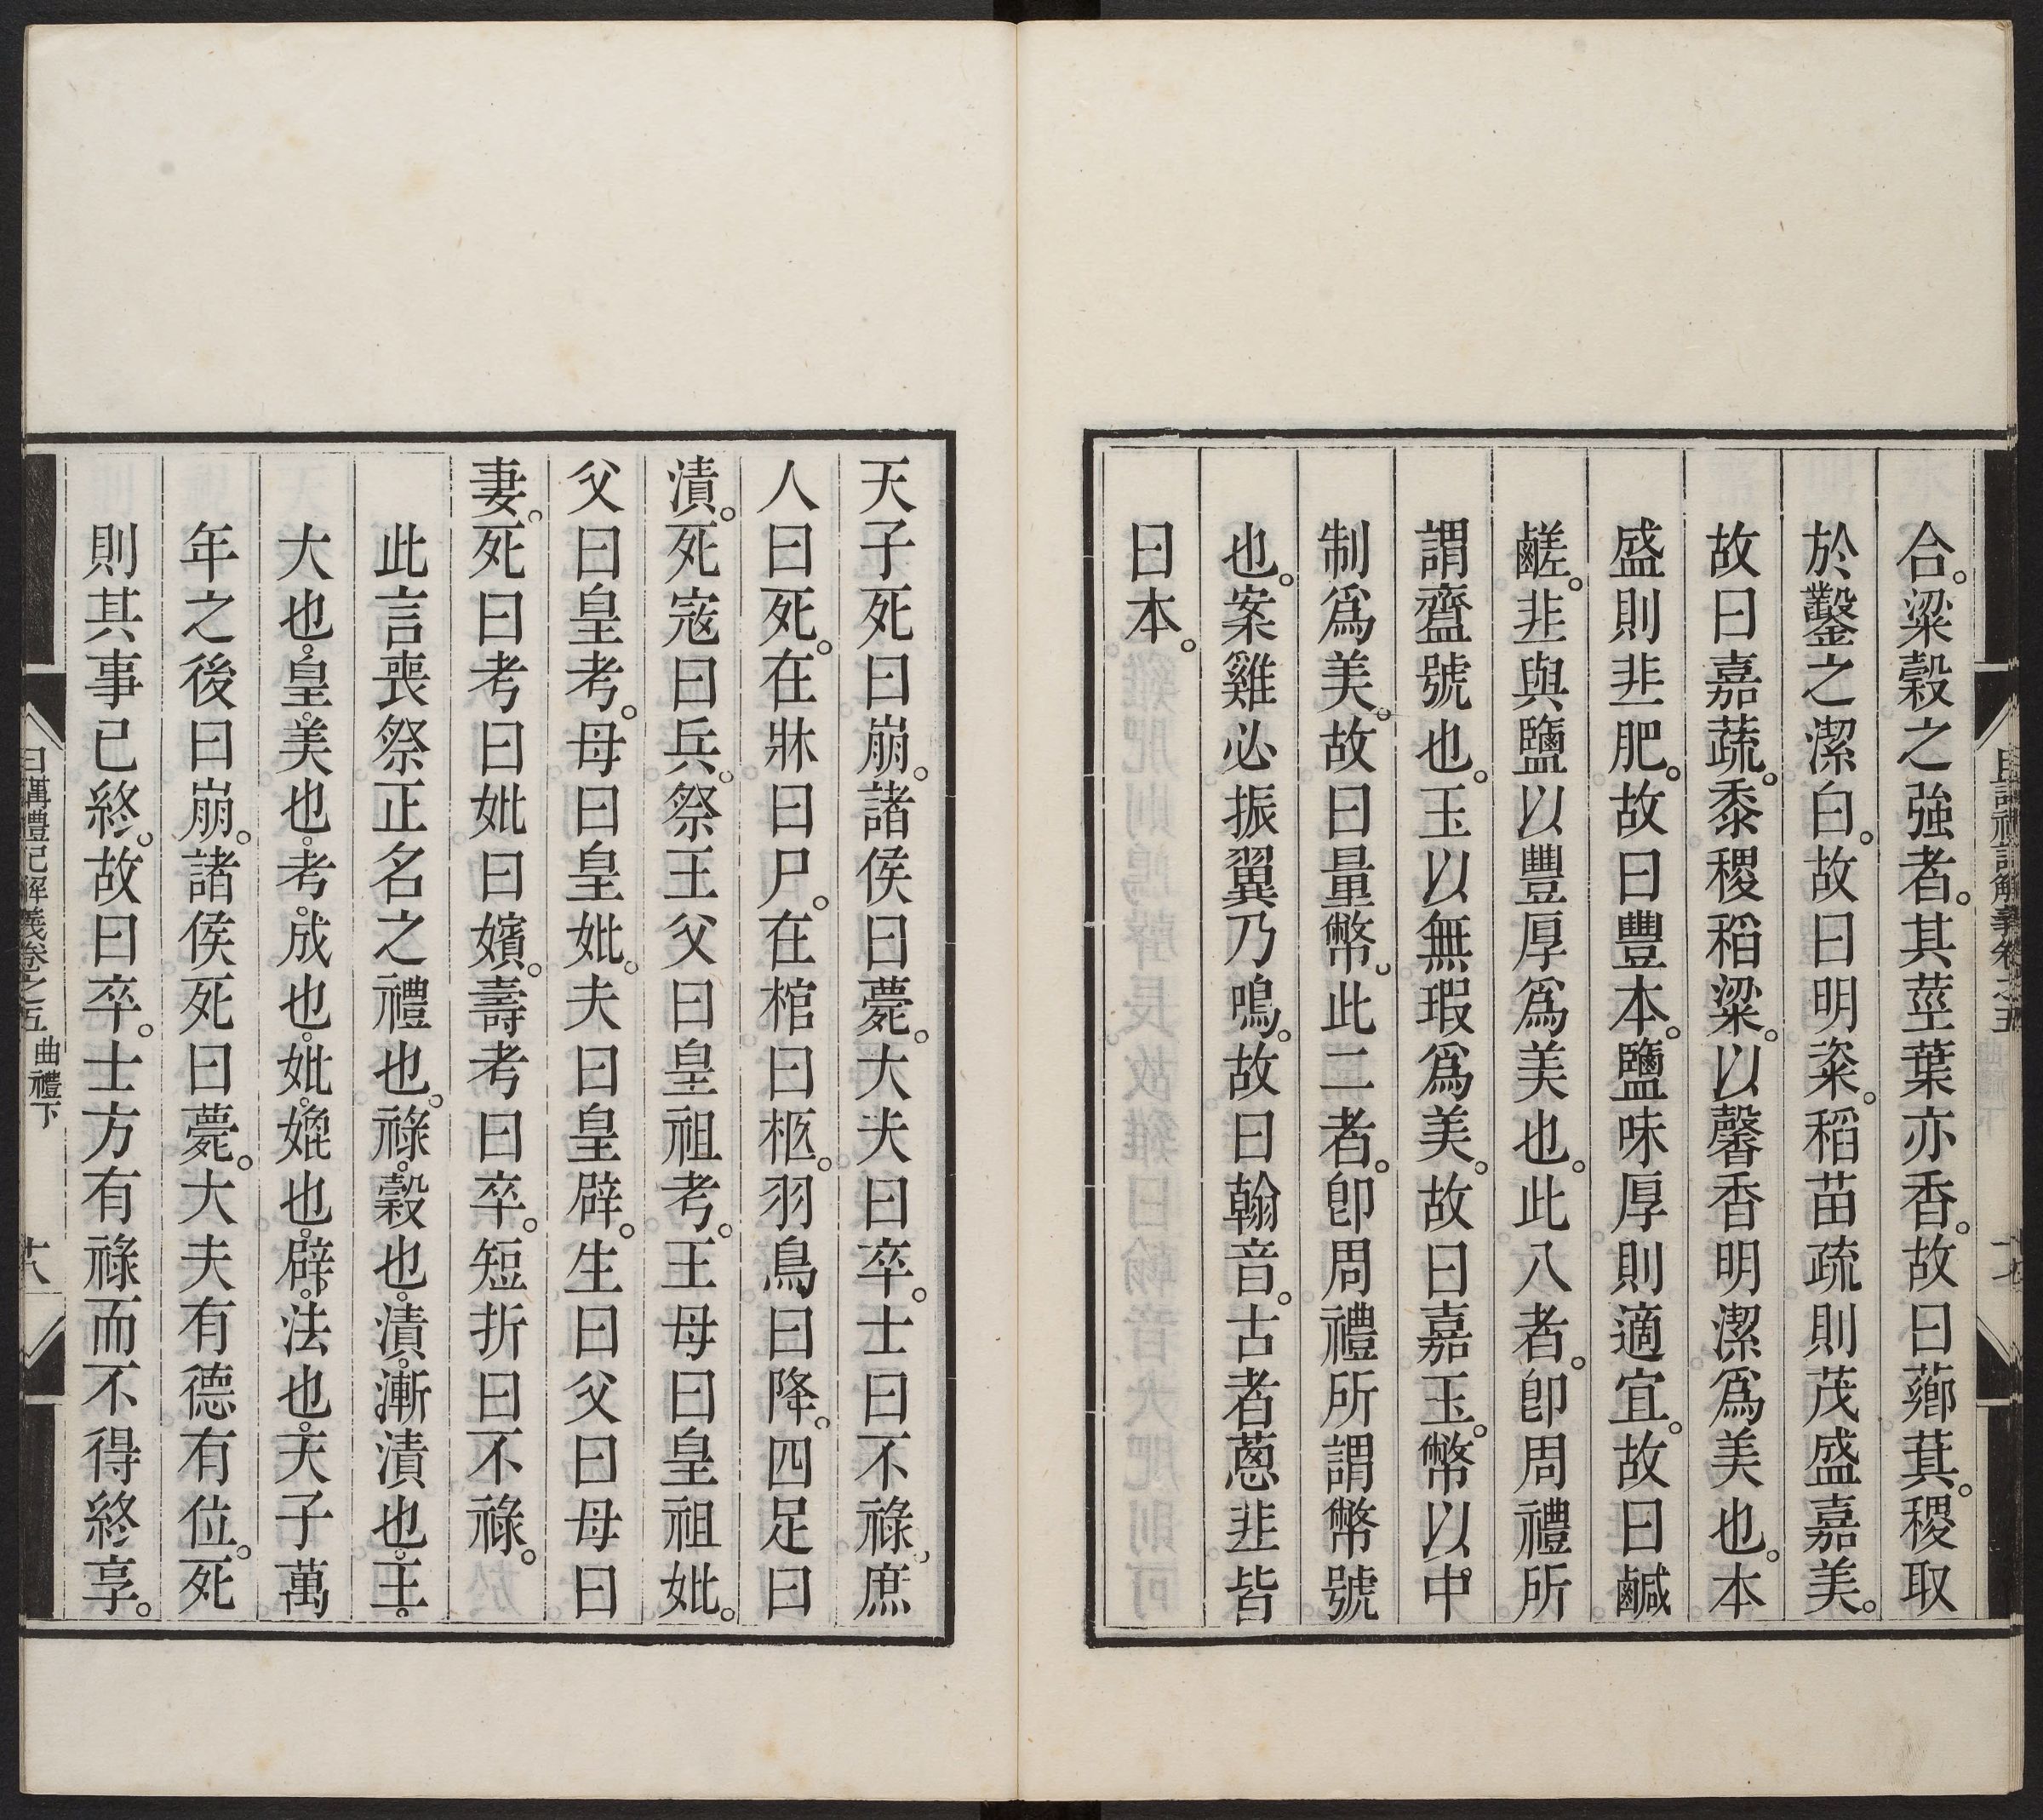 合。粱穀之強者。其莖葉亦香。故曰薌萁。稷取
於鑿之潔白。故曰明粢。稻苗疏則茂盛嘉美。
故曰嘉蔬。黍稷稻粱。以馨香明潔爲美也。本
盛則韭肥。故曰豐本。鹽味厚則適宜。故曰鹹
鹺。韭與鹽以豐厚爲美也。此八者。卽周禮所
謂齍號也。玉以無瑕爲美。故曰嘉玉。幣以中
制爲美。故曰量幣。此二者。卽周禮所謂幣號
也。案雞必振翼乃鳴。故曰翰音。古者蔥韭皆
曰本。
天子死曰崩。諸侯曰薨。大夫曰卒。士曰不祿。庶
人曰死。在牀曰尸。在棺曰柩。羽鳥曰降。四足曰
漬。死寇曰兵。祭王父曰皇祖考。王母曰皇祖妣。
父曰皇考。母曰皇妣。夫曰皇辟。生曰父曰母曰
妻。死曰考曰妣曰嬪。壽考曰卒。短折曰不祿。
此言喪祭正名之禮也。祿。穀也。漬。漸漬也。王。
大也。皇。美也。考。成也。妣。媲也。辟。法也。天子萬
年之後曰崩。諸侯死曰薨。大夫有德有位。死
則其事已終。故曰卒。士方有祿而不得終享。
日講禮記解義卷之五 曲禮下 十八